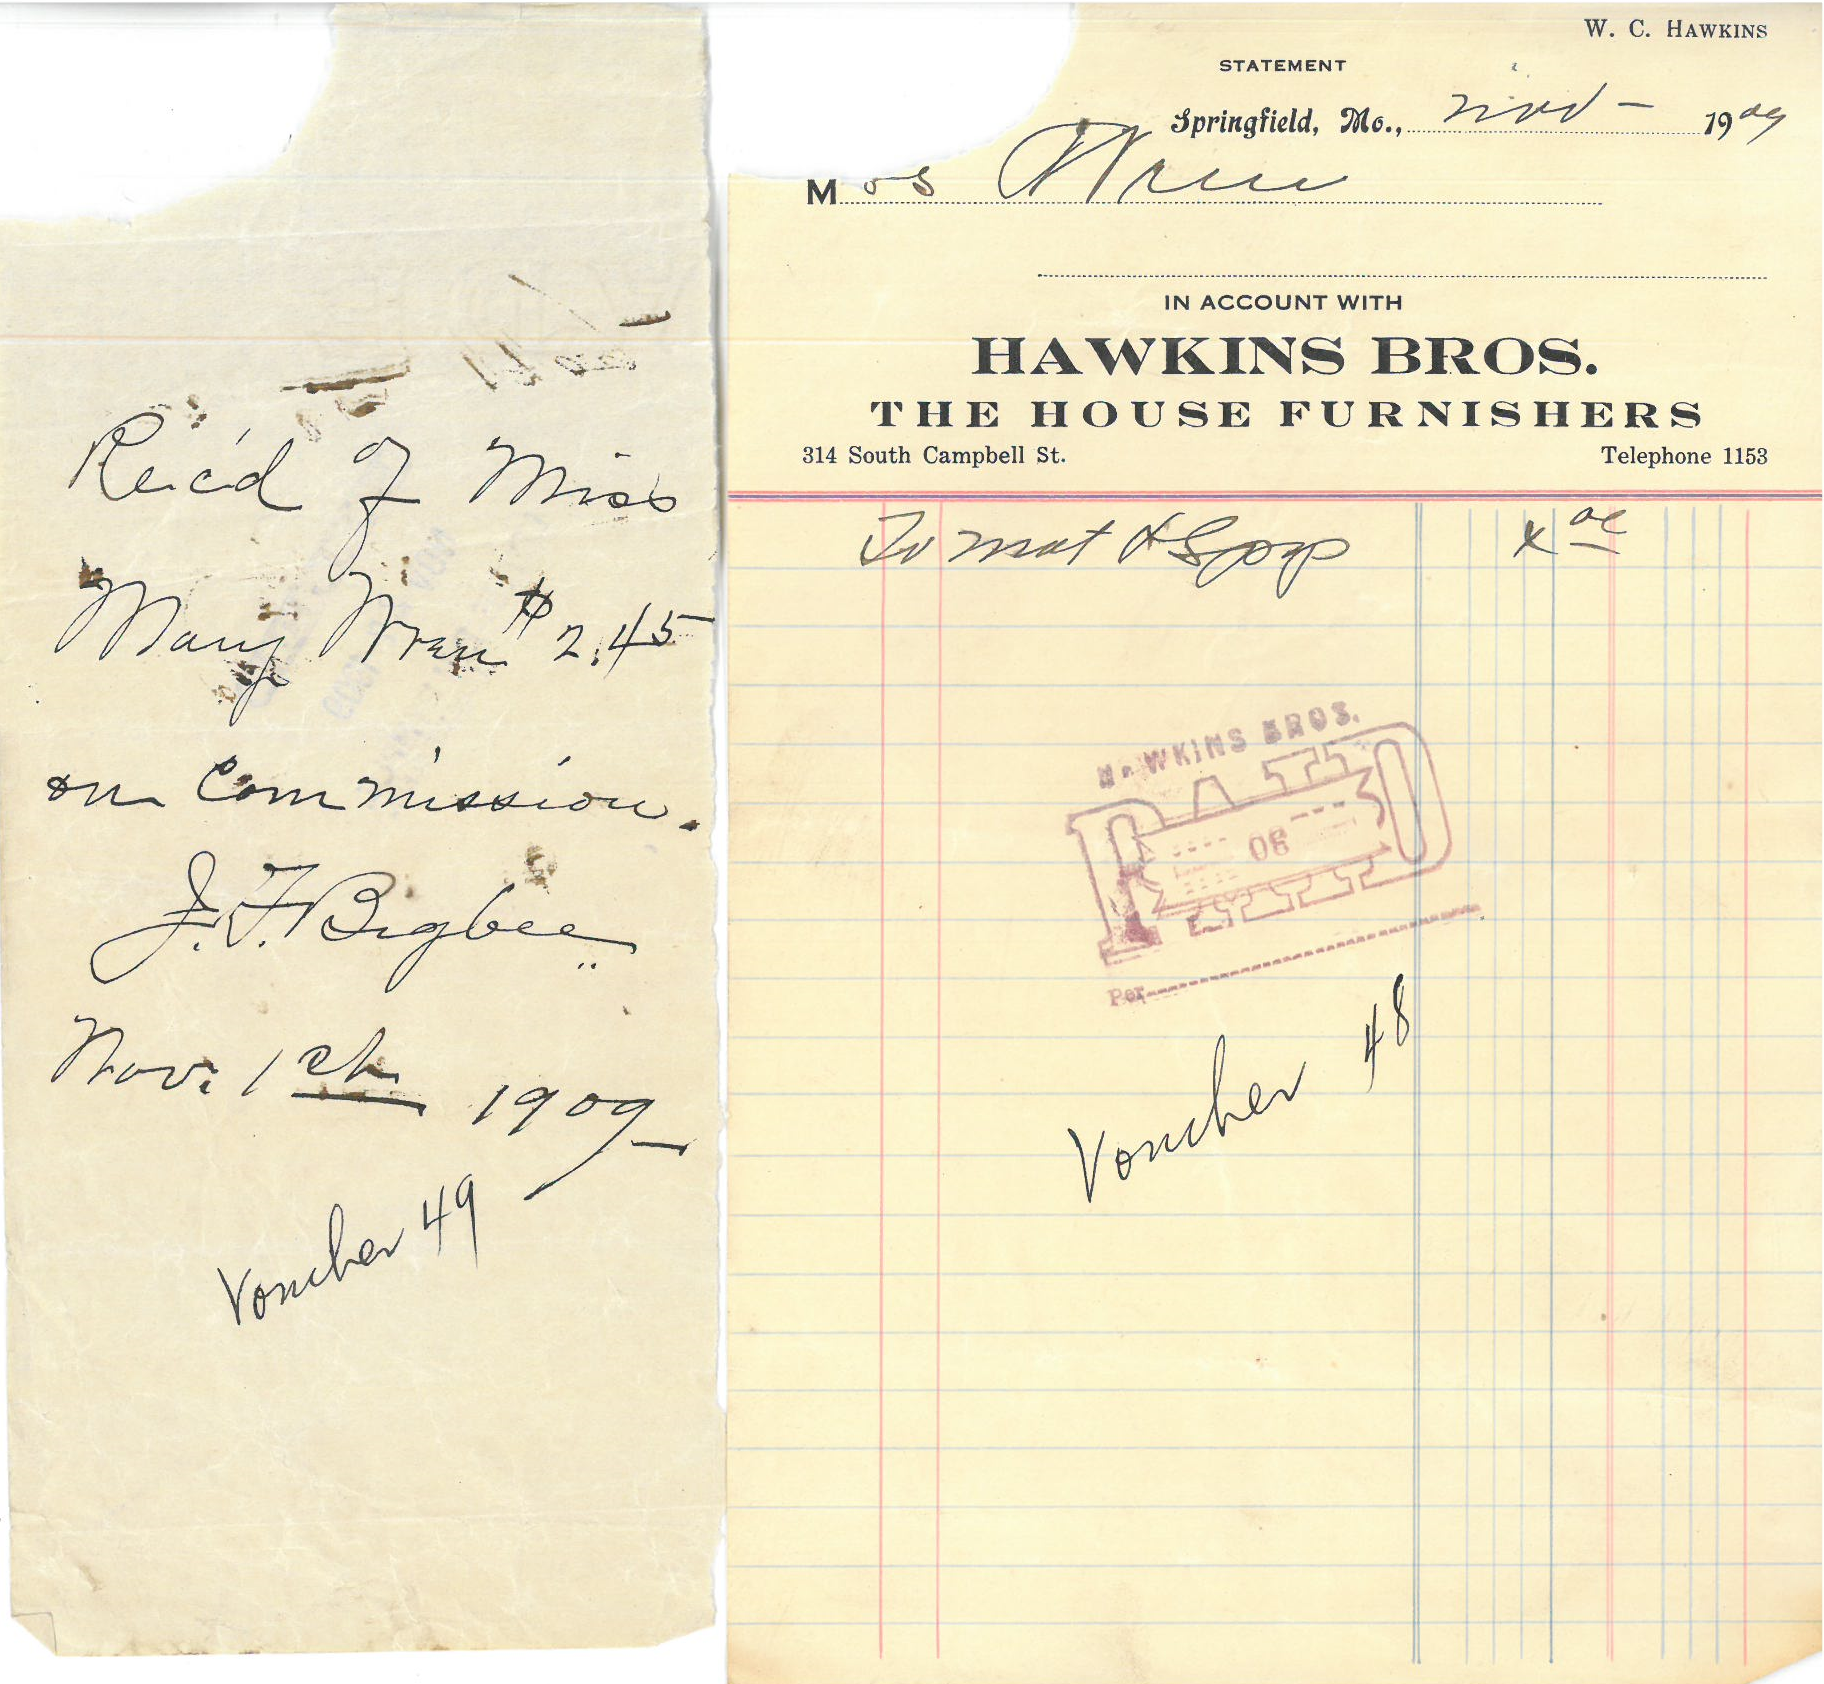 Rec'd of Miss
Mary Wren $2.45
on Commission.
J. F. Bigbee
Nov. 1st 1909
Voucher 49
W. C. HAWKINS
STATEMENT
Springfield, Mo., Nov - 1909
M rs Wren
IN ACCOUNT WITH
HAWKINS BROS.
THE HOUSE FURNISHERS
314 South Campbell St. Telephone 1153
To Mat & Spgs
HAWKINS BROS.
PAID
Per
Voucher 48